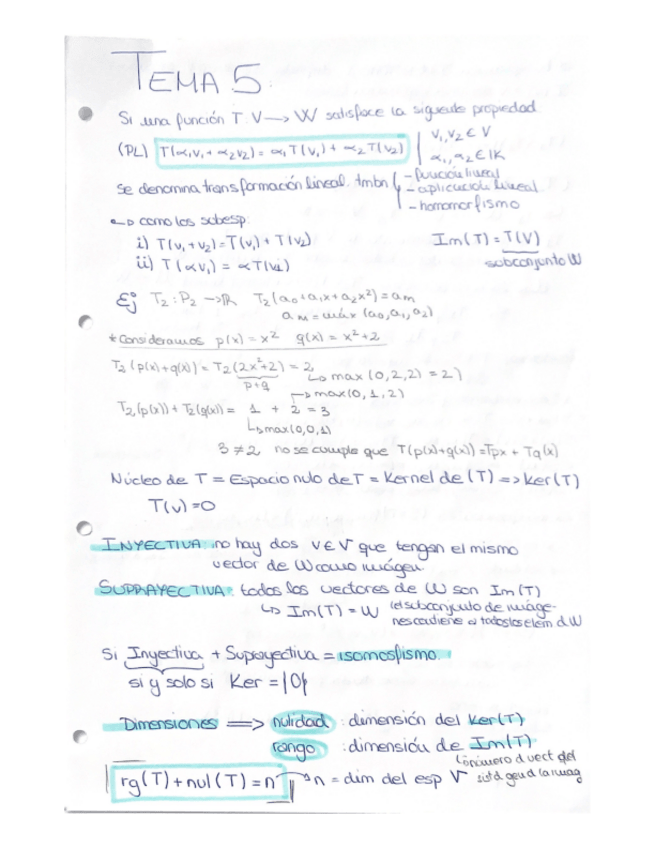 TEMA 5.
Si una función T: V → W satisface la siguiente propiedad
(PL) T(α₁v₁ + α₂v₂) = α₁T(v₁) + α₂T(v₂) | v₁, v₂ ∈ V
α₁, α₂ ∈ IK
se denomina transformación lineal. tmbn { - función lineal
- aplicación lineal
- homomorfismo
↳ como los subesp:
i) T(v₁ + v₂) = T(v₁) + T(v₂) Im(T) = T(V)
ii) T(αv₁) = αT(v₁) subconjunto W
Ej T₂: P₂ → IR T₂(a₀ + a₁x + a₂x²) = am
am = máx (a₀, a₁, a₂)
* Consideramos p(x) = x² q(x) = x² + 2
T₂(p(x) + q(x)) = T₂(2x² + 2) = 2
p+q ↳ max (0, 2, 2) = 2)
↱ max(0, 1, 2)
T₂(p(x)) + T₂(q(x)) = 1 + 2 = 3
↳ max(0, 0, 1)
3 ≠ 2 no se cumple que T(p(x)+q(x)) = Tpx + Tq(x)
Núcleo de T = Espacio nulo de T = Kernel de (T) => Ker(T)
T(v) = 0
INYECTIVA: no hay dos v ∈ V que tengan el mismo
vector de W como imágen.
SUPRAYECTIVA: todos los vectores de W son Im(T)
↳ Im(T) = W (el subconjunto de imáge-
nes contiene a todos los elem d W
Si Inyectiva + Suprayectiva = isomosfismo.
si y solo si Ker = {0}
Dimensiones => nulidad : dimensión del Ker(T)
rango : dimensión de Im(T)
número d vect del
rg(T) + nul(T) = n → n = dim del esp V sist d gend la imag